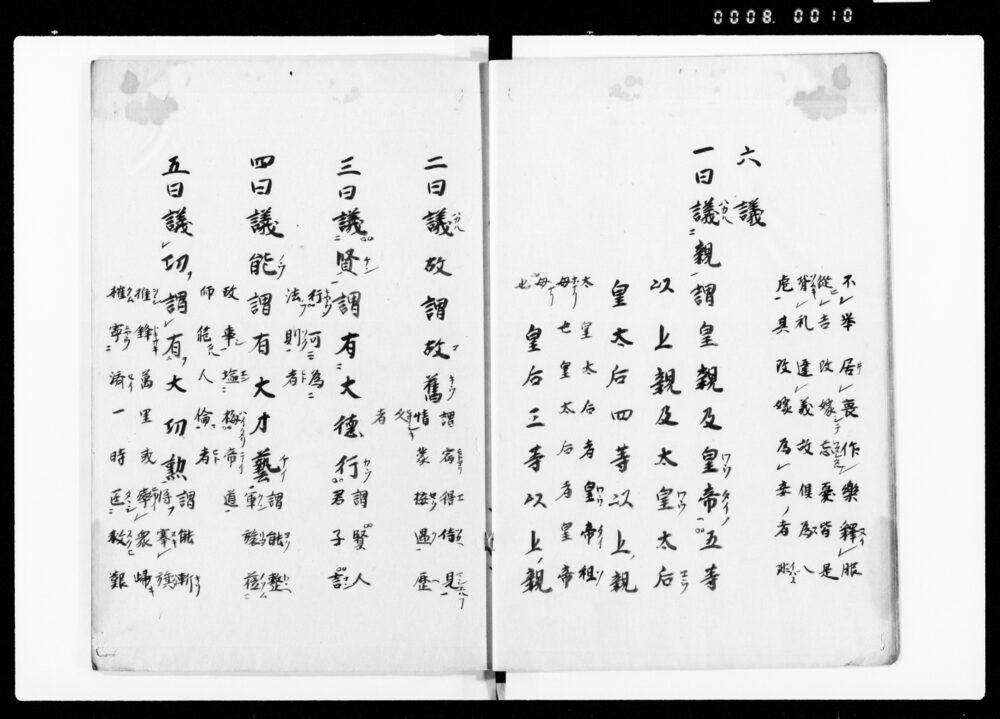 0008. 0010
不挙居喪作樂釋服
從吉改嫁忘憂皆是
背礼違義故俱為八
虐其改嫁為妾者非
六議
一曰議親謂皇親及皇帝五等
以上親及太皇太后
皇太后四等以上親
太皇太后者皇帝祖
母也皇太后者皇帝
母也
皇后三等以上親
二曰議故謂故舊
謂宿得侍見
情裳接遇歷
久者
三曰議賢謂有大德行
謂賢人
君子言
行可為
法則者
四曰議能謂有大才藝
謂能整
軍旅莅
政事塩梅帝道
師範人倫者
五曰議功謂有大功勲
謂能斬
將搴旗
推鋒萬里或率衆歸
寧濟一時匡救艱